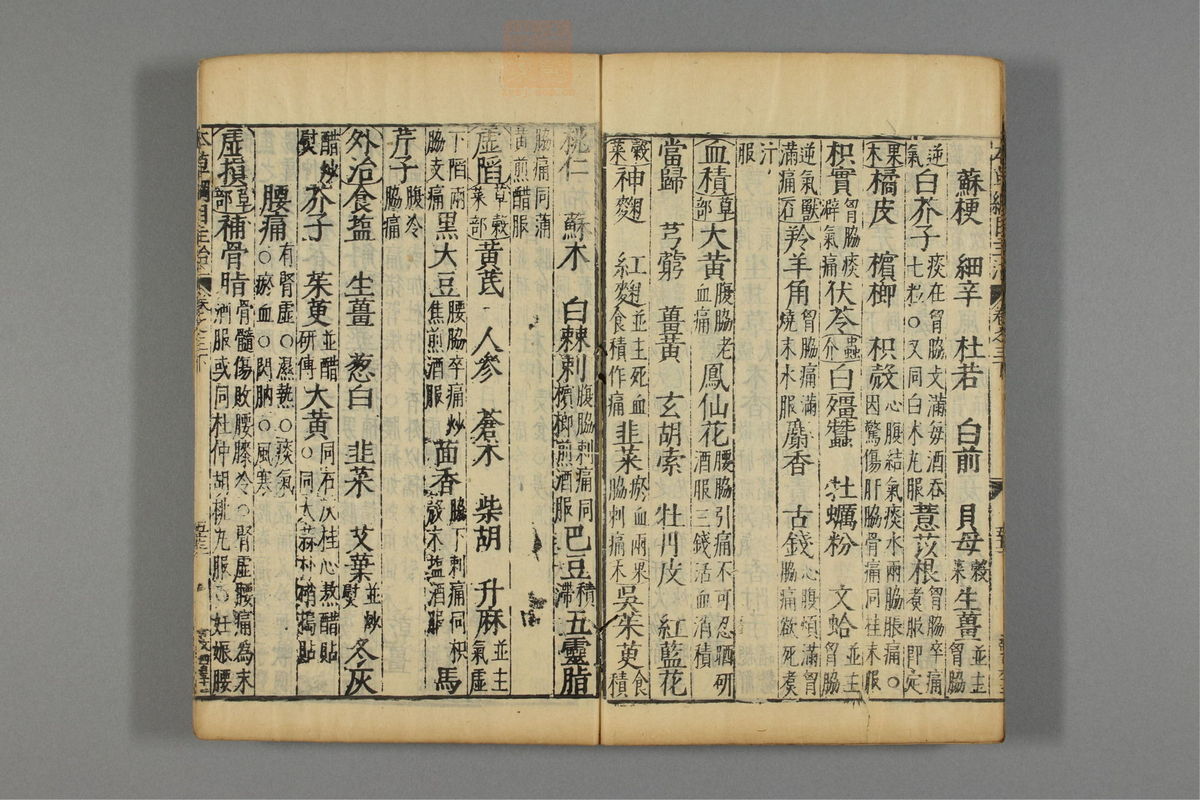 蘇梗 細辛 杜若 白前 貝母 穀菜 生薑 並主胷脇
逆氣 白芥子 痰在胷脇支滿每酒吞七粒○又同白术丸服 薏苡根 胷脇卒痛煮服即定
果木 橘皮 檳榔 枳殼 心腹結氣痰水兩脇脹痛○因驚傷肝脇骨痛同桂末服
枳實 胷脇痰癖氣痛 伏苓 蟲介 白殭蠶 牡蠣粉 文蛤 並主胷脇
逆氣滿痛 獸石 羚羊角 胷脇痛滿燒末水服 麝香 古錢 心腹煩滿胷脇痛欲死煮
汁服
血積 草部 大黃 腹脇老血痛 鳳仙花 腰脇引痛不可忍晒研酒服三錢活血消積
當歸 芎藭 薑黃 玄胡索 牡丹皮 紅藍花
穀菜 神麴 紅麴 並主死血食積作痛 韭菜 瘀血兩脇刺痛 果木 吳茱萸 食積
桃仁 蘇木 白棘刺 腹脇刺痛同檳榔煎酒服 巴豆 積滯 五靈脂
脇痛同蒲黃煎醋服
虛陷 草穀菜部 黃芪 人參 蒼朮 柴胡 升麻 並主氣虛
下陷兩脇支痛 黑大豆 腰脇卒痛炒焦煎酒服 茴香 脇下刺痛同枳殼末盐酒服 馬
芹子 腹冷脇痛
外治 食塩 生薑 葱白 韭菜 艾葉 並炒熨 冬灰
醋炒熨 芥子 茱萸 並醋研傅 大黃 同石灰桂心熬醋貼○同大蒜朴硝搗貼
腰痛 有腎虛○濕熱○痰氣○瘀血○閃肭○風寒
虛損 草部 補骨脂 骨髓傷敗腰膝冷○腎虛腰痛為末酒服或同杜仲胡桃丸服○妊娠腰